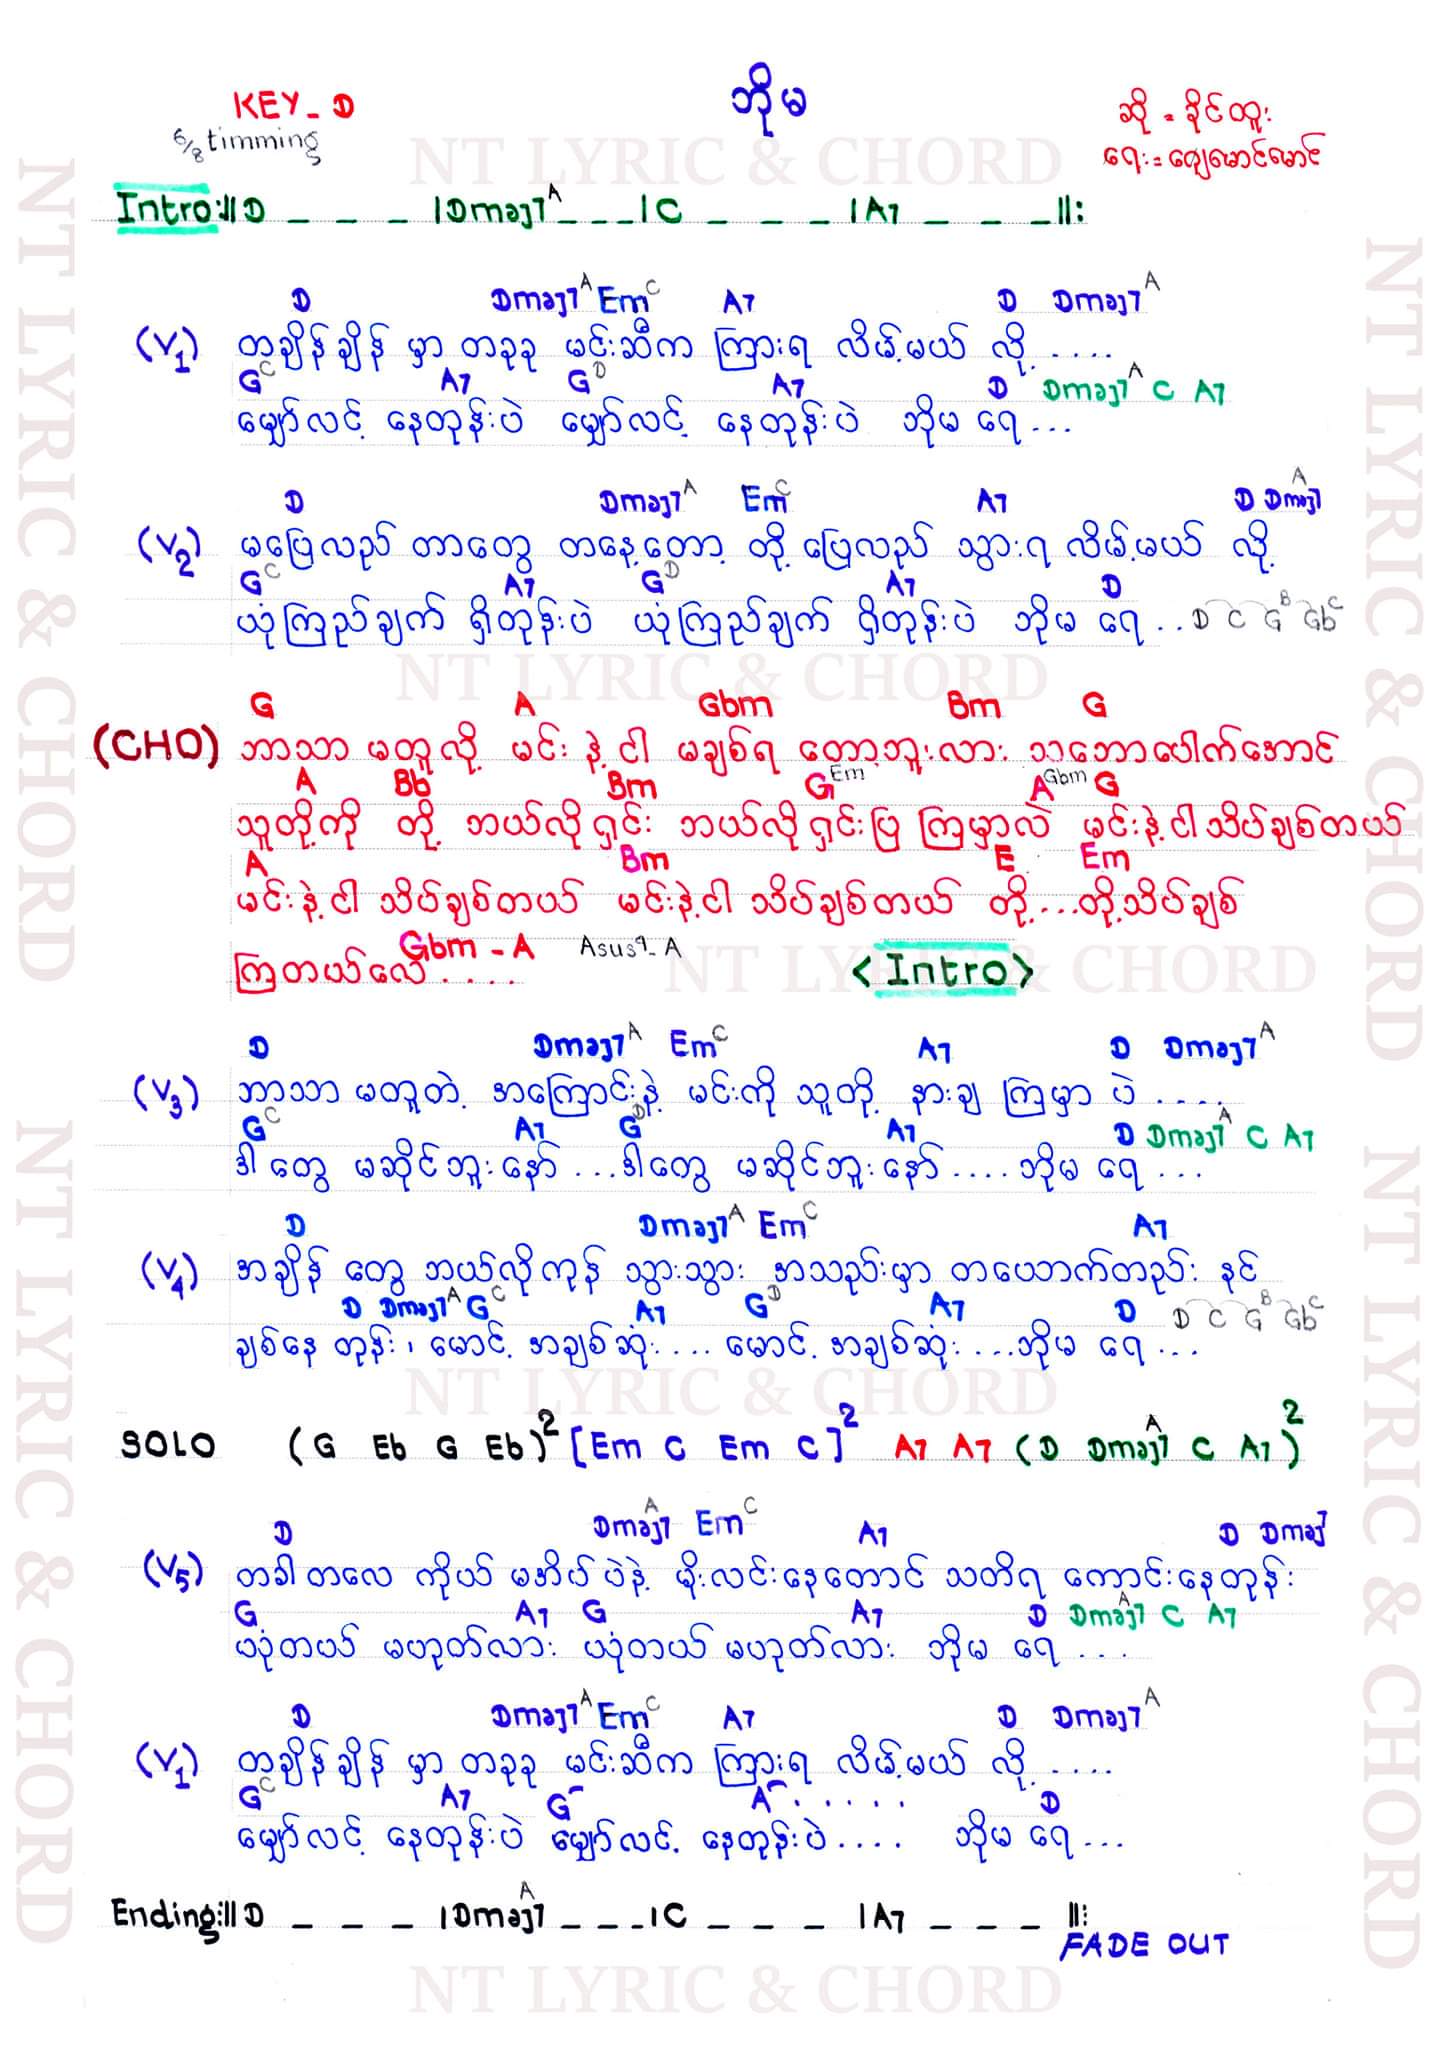 ဘိုမ
KEY - D
6/8 timming
ဆို = ခိုင်ထူး
ရေး = ဂျေမောင်မောင်
NT LYRIC & CHORD
Intro :|| D _ _ _ | Dmaj7 A _ _ _ | C _ _ _ | A7 _ _ _ ||:
D Dmaj7 A Em C A7 D Dmaj7 A
(V1) တချိန်ချိန် မှာ တခုခု မင်းဆီက ကြားရ လိမ့်မယ် လို့ ....
G C A7 G D A7 D Dmaj7 A C A7
မျှော်လင့် နေတုန်းပဲ မျှော်လင့် နေတုန်းပဲ ဘိုမ ရေ ...
D Dmaj7 A Em C A7 D Dmaj7 A
(V2) မပြေလည် တာတွေ တနေ့တော့ တို့ ပြေလည် သွားရ လိမ့်မယ် လို့
G C A7 G D A7 D
ယုံကြည်ချက် ရှိတုန်းပဲ ယုံကြည်ချက် ရှိတုန်းပဲ ဘိုမ ရေ .. D C G B Gb C
NT LYRIC & CHORD
G A Gbm Bm G
(CHO) ဘာသာ မတူလို့ မင်း နဲ့ ငါ မချစ်ရ တော့ဘူးလား သဘောပေါက်အောင်
A Bb Bm G Em A Gbm G
သူတို့ကို တို့ ဘယ်လိုရှင်း ဘယ်လိုရှင်းပြ ကြမှာလဲ မင်းနဲ့ငါသိပ်ချစ်တယ်
A Bm E Em
မင်းနဲ့ငါ သိပ်ချစ်တယ် မင်းနဲ့ငါ သိပ်ချစ်တယ် တို့....တို့သိပ်ချစ်
Gbm - A Asus9 - A
ကြတယ်လေ ..... <Intro>
NT LYRIC & CHORD
D Dmaj7 A Em C A7 D Dmaj7 A
(V3) ဘာသာ မတူတဲ့ အကြောင်းနဲ့ မင်းကို သူတို့ နားချ ကြမှာ ပဲ ....
G C A7 G D A7 D Dmaj7 A C A7
ဒါတွေ မဆိုင်ဘူးနော် ...ဒါတွေ မဆိုင်ဘူးနော် ....ဘိုမ ရေ ...
D Dmaj7 A Em C A7
(V4) အချိန် တွေ ဘယ်လိုကုန် သွားသွား အသည်းမှာ တယောက်တည်း နင်
D Dmaj7 A G C A7 G D A7 D D C G B Gb C
ချစ်နေ တုန်း၊ မောင့် အချစ်ဆုံး.... မောင့် အချစ်ဆုံး ...ဘိုမ ရေ ...
NT LYRIC & CHORD
SOLO (G Eb G Eb)2 [Em C Em C]2 A7 A7 (D Dmaj7 A C A7)2
D Dmaj7 A Em C A7 D Dmaj7
(V5) တခါတလေ ကိုယ် မအိပ်ပဲနဲ့ မိုးလင်းနေတောင် သတိရ ကောင်းနေတုန်း
G A7 G A7 D Dmaj7 A C A7
ယုံတယ် မဟုတ်လား ယုံတယ် မဟုတ်လား ဘိုမ ရေ ...
D Dmaj7 A Em C A7 D Dmaj7 A
(V1) တချိန်ချိန် မှာ တခုခု မင်းဆီက ကြားရ လိမ့်မယ် လို့ ....
G C A7 G A ...... D
မျှော်လင့် နေတုန်းပဲ မျှော်လင့် နေတုန်းပဲ .... ဘိုမ ရေ ...
Ending :|| D _ _ _ | Dmaj7 A _ _ _ | C _ _ _ | A7 _ _ _ ||:
FADE OUT
NT LYRIC & CHORD
NT LYRIC & CHORD
NT LYRIC & CHORD
NT LYRIC & CHORD
NT LYRIC & CHORD